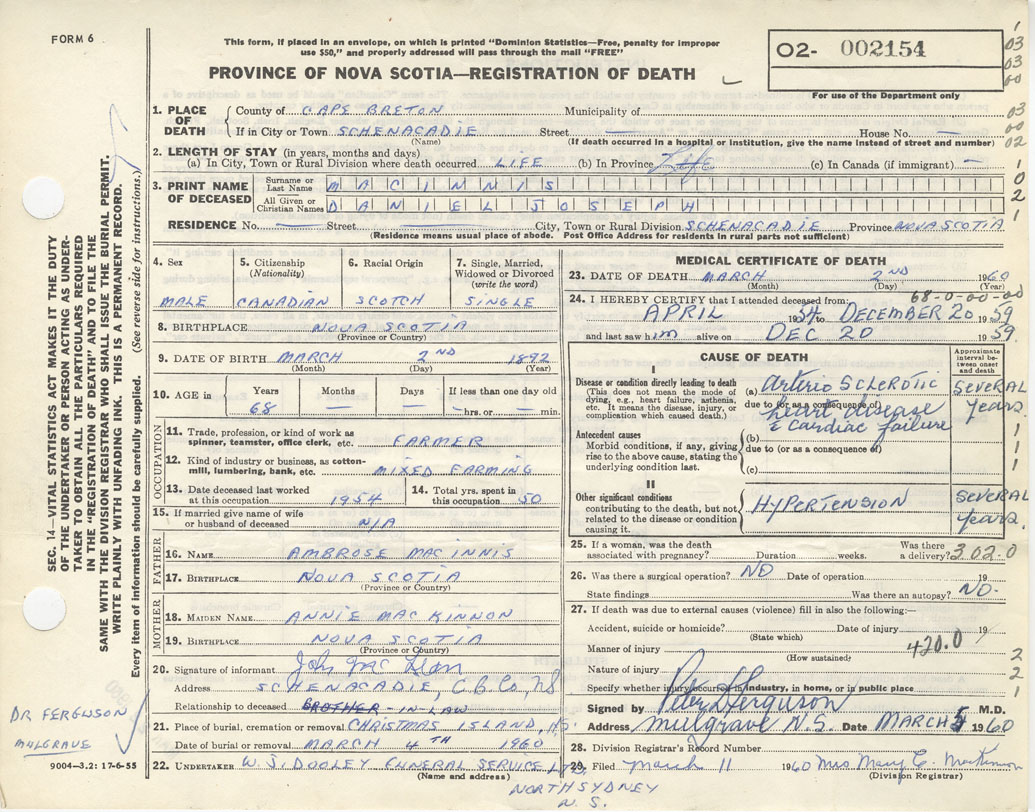 FORM 6
This form, if placed in an envelope, on which is printed "Dominion Statistics—Free, penalty for improper
use $50," and properly addressed will pass through the mail "FREE"
PROVINCE OF NOVA SCOTIA—REGISTRATION OF DEATH
02- 002154
For use of the Department only
1
03
03
00
03
00
02
1
0
2
1
SEC. 14—VITAL STATISTICS ACT MAKES IT THE DUTY
OF THE UNDERTAKER OR PERSON ACTING AS UNDER-
TAKER TO OBTAIN ALL THE PARTICULARS REQUIRED
IN THE "REGISTRATION OF DEATH" AND TO FILE THE
SAME WITH THE DIVISION REGISTRAR WHO SHALL ISSUE THE BURIAL PERMIT.
WRITE PLAINLY WITH UNFADING INK. THIS IS A PERMANENT RECORD.
Every item of information should be carefully supplied. (See reverse side for instructions.)
1. PLACE OF DEATH County of CAPE BRETON Municipality of
If in City or Town SCHENACADIE Street — House No. —
(Name) (If death occurred in a hospital or institution, give the name instead of street and number)
2. LENGTH OF STAY (in years, months and days)
(a) In City, Town or Rural Division where death occurred LIFE (b) In Province Life (c) In Canada (if immigrant) —
3. PRINT NAME OF DECEASED Surname or Last Name MACINNIS
All Given or Christian Names DANIEL JOSEPH
RESIDENCE No. — Street — City, Town or Rural Division SCHENACADIE Province NOVA SCOTIA
(Residence means usual place of abode. Post Office Address for residents in rural parts not sufficient)
4. Sex 5. Citizenship (Nationality) 6. Racial Origin 7. Single, Married, Widowed or Divorced (write the word)
MALE CANADIAN SCOTCH SINGLE
8. BIRTHPLACE NOVA SCOTIA
(Province or Country)
9. DATE OF BIRTH MARCH 2ND 1892
(Month) (Day) (Year)
10. AGE in Years Months Days If less than one day old
68 — — — hrs. or — min.
OCCUPATION
11. Trade, profession, or kind of work as
spinner, teamster, office clerk, etc. FARMER
12. Kind of industry or business, as cotton-
mill, lumbering, bank, etc. MIXED FARMING
13. Date deceased last worked at this occupation 1954 14. Total yrs. spent in this occupation 50
15. If married give name of wife
or husband of deceased N/A
FATHER
16. NAME AMBROSE MACINNIS
17. BIRTHPLACE NOVA SCOTIA
(Province or Country)
MOTHER
18. MAIDEN NAME ANNIE MACKINNON
19. BIRTHPLACE NOVA SCOTIA
(Province or Country)
20. Signature of informant John Mc Lean
Address SCHENACADIE, C.B. Co, NS
Relationship to deceased BROTHER-IN-LAW
21. Place of burial, cremation or removal CHRISTMAS ISLAND, NS.
Date of burial or removal MARCH 4TH 1960
22. UNDERTAKER W. J. DOOLEY FUNERAL SERVICE LTD,
(Name and address)
NORTH SYDNEY
N. S.
DR FERGUSON
MULGRAVE
9004—3.2: 17-6-55
MEDICAL CERTIFICATE OF DEATH
23. DATE OF DEATH MARCH 2ND 1960
(Month) (Day) (Year)
68-0-00-00
24. I HEREBY CERTIFY that I attended deceased from:
APRIL 1954 to DECEMBER 20 1959
and last saw him alive on DEC 20 1959
CAUSE OF DEATH
Approximate interval between onset and death
I
Disease or condition directly leading to death
(This does not mean the mode of dying, e.g., heart failure, asthenia, etc. It means the disease, injury, or complication which caused death.)
(a) Arterio SCLEROTIC SEVERAL
due to (or as a consequence of) heart disease years
& cardiac failure
Antecedent causes
Morbid conditions, if any, giving rise to the above cause, stating the underlying condition last.
(b)
due to (or as a consequence of)
(c)
1
1
1
1
II
Other significant conditions
contributing to the death, but not related to the disease or condition causing it.
HYPERTENSION SEVERAL years
25. If a woman, was the death associated with pregnancy? Duration weeks. Was there a delivery? 302.0
26. Was there a surgical operation? NO Date of operation 19
State findings Was there an autopsy? NO.
27. If death was due to external causes (violence) fill in also the following:—
Accident, suicide or homicide? Date of injury 19
(State which)
Manner of injury 420.0
(How sustained)
Nature of injury
Specify whether injury occurred in industry, in home, or in public place
2
2
1
Signed by Peter S Ferguson M.D.
Address Mulgrave N.S. Date MARCH 5 1960
28. Division Registrar's Record Number
29. Filed March 11 1960 Mrs Mary C. MacKinnon
(Division Registrar)